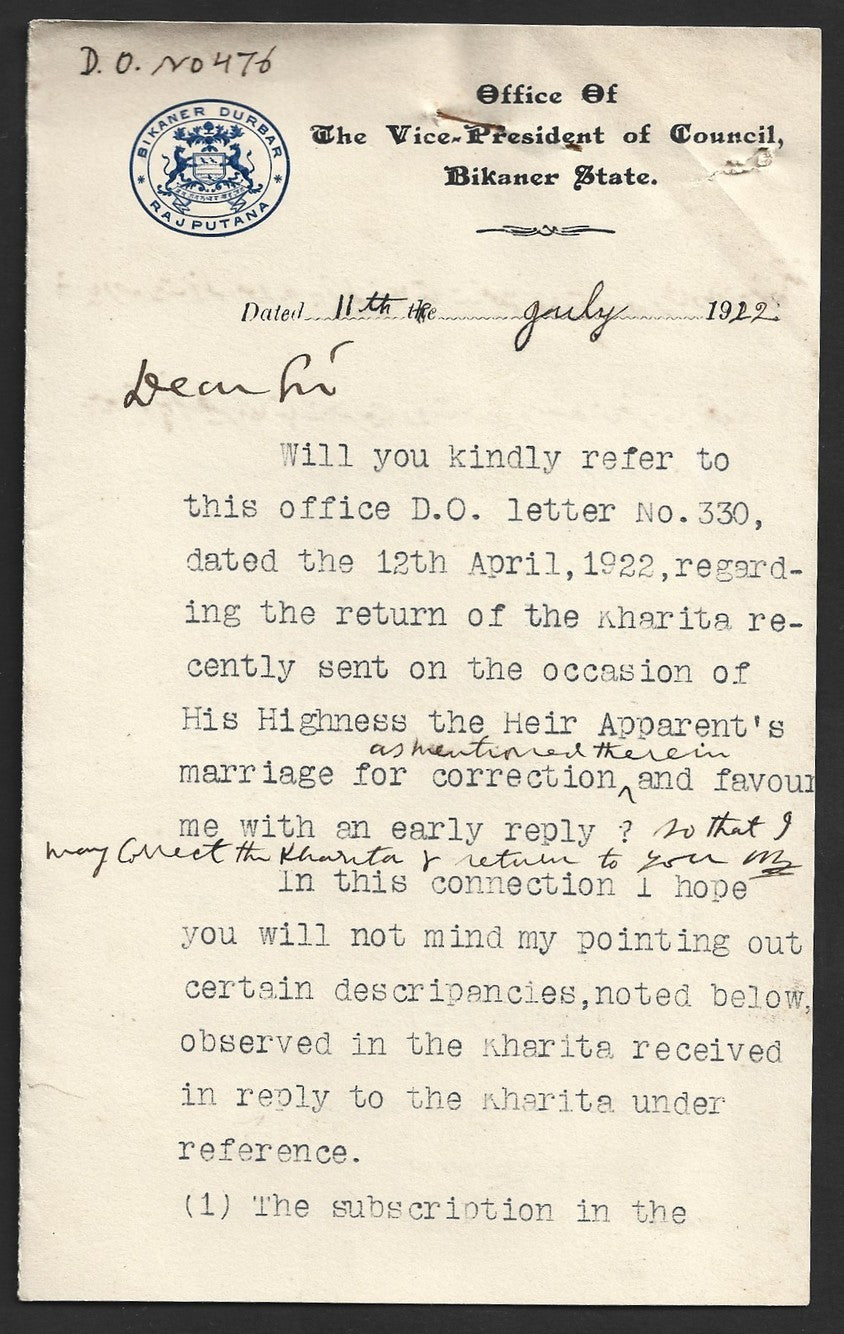 D. O. No 476
BIKANER DURBAR
RAJPUTANA
Office Of
The Vice-President of Council,
Bikaner State.
Dated 11th the July 1922.
Dear Sir
Will you kindly refer to
this office D.O. letter No.330,
dated the 12th April,1922,regard-
ing the return of the Kharita re-
cently sent on the occasion of
His Highness the Heir Apparent's
as mentioned therein
marriage for correction ‸ and favour
me with an early reply ? so that I
may correct the Kharita & return to you
In this connection I hope
you will not mind my pointing out
certain descripancies,noted below,
observed in the Kharita received
in reply to the Kharita under
reference.
(1) The subscription in the